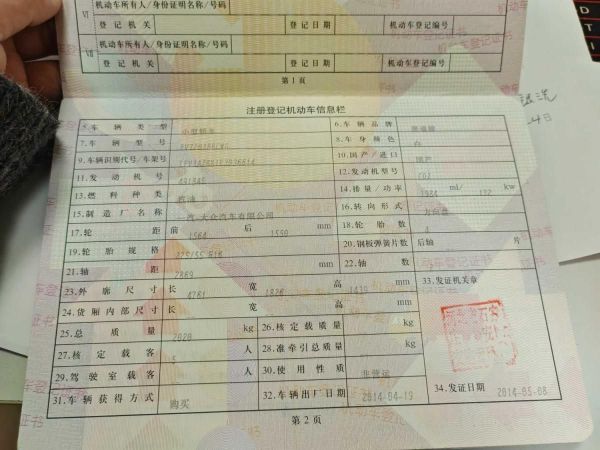 机动车所有人/身份证明名称/号码
登记机关 登记日期 机动车登记编号
Ⅶ 机动车所有人/身份证明名称/号码
登记机关 登记日期 机动车登记编号
第1页
注册登记机动车信息栏
5.车辆类型 小型轿车 6.车辆品牌
7.车辆型号 8.车身颜色 白
9.车辆识别代号/车架号 10.国产/进口 国产
11.发动机号 12.发动机型号
13.燃料种类 汽油 14.排量/功率 1984 ml/ 132 kw
15.制造厂名称 一汽-大众汽车有限公司 16.转向形式 方向盘
17.轮距 前 1564 后 1550 mm 18.轮胎数 4
19.轮胎规格 20.钢板弹簧片数 后轴 片
21.轴距 2869 mm 22.轴数 2
23.外廓尺寸 长 4761 宽 1826 高 1439 mm 33.发证机关章
24.货厢内部尺寸 长 宽 高 mm
25.总质量 2020 kg 26.核定载质量 kg
27.核定载客 5 人 28.准牵引总质量 kg
29.驾驶室载客 人 30.使用性质 非营运
31.车辆获得方式 购买 32.车辆出厂日期 2014-04-19 34.发证日期 2014-05-08
第2页